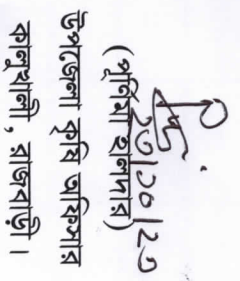 ২০|১০|২১
(পূর্ণিমা হালদার)
উপজেলা কৃষি অফিসার
কালুখালী, রাজবাড়ী।